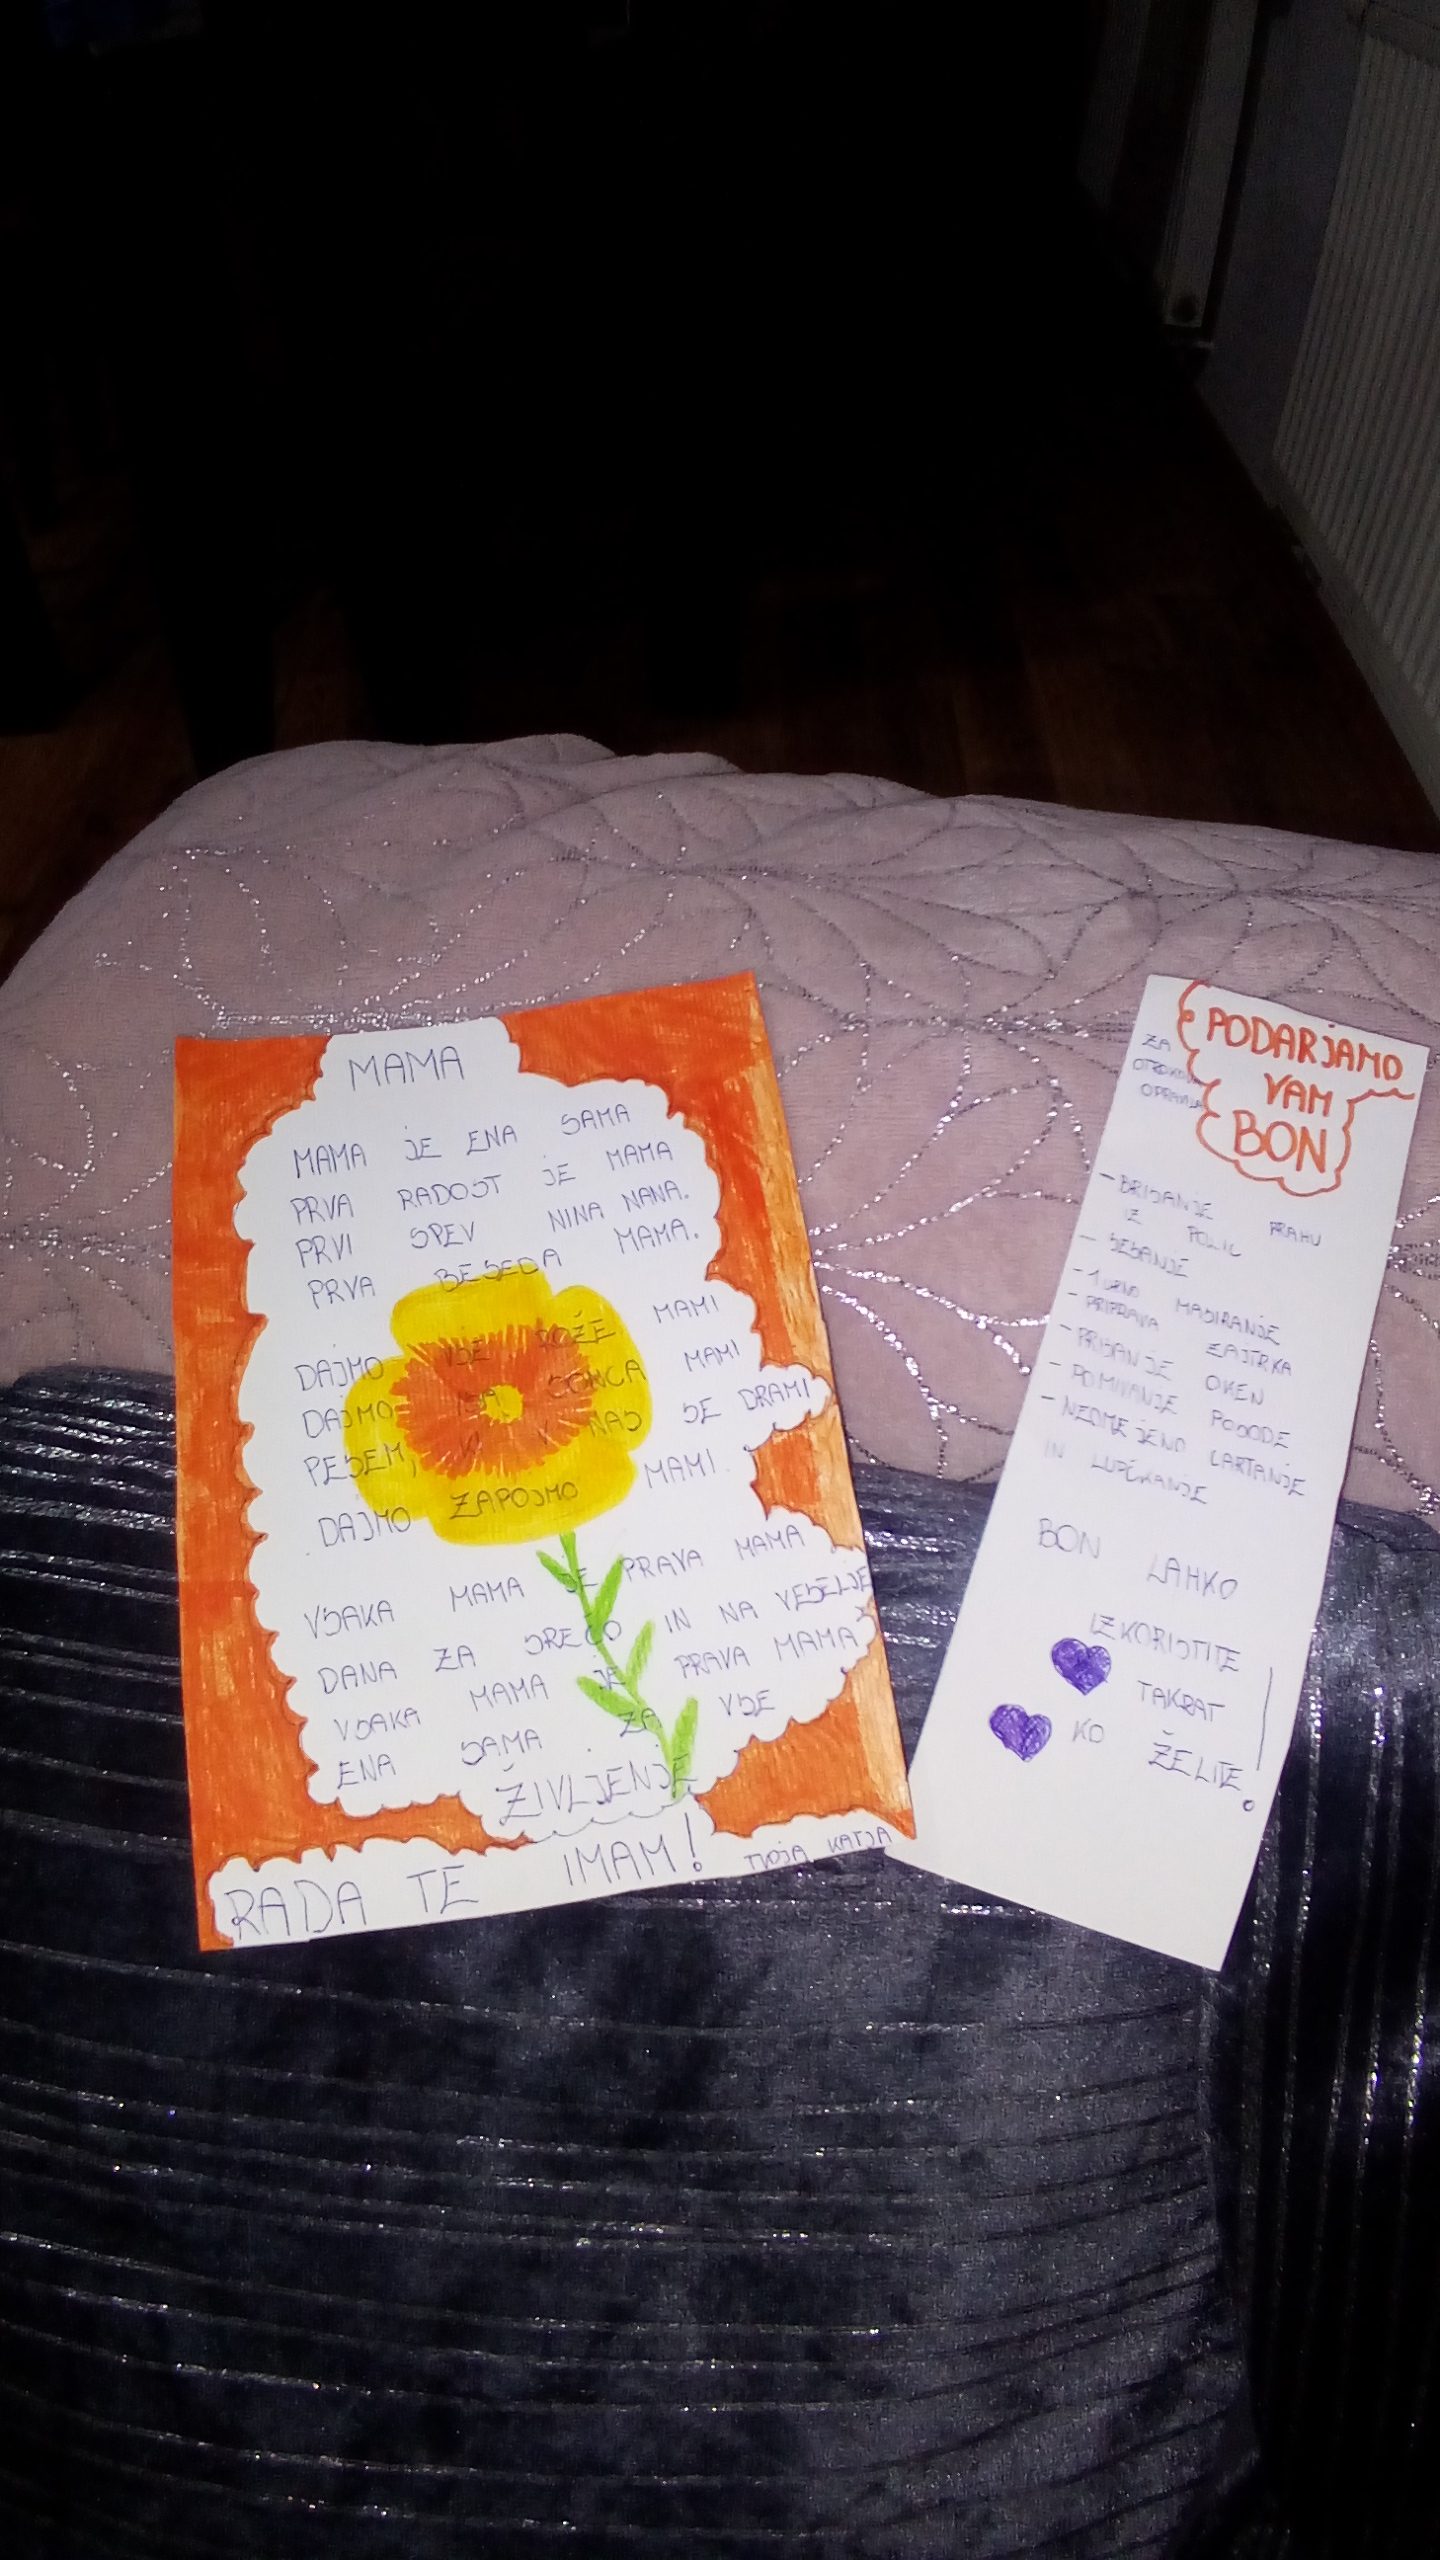 MAMA
MAMA JE ENA SAMA
PRVA RADOST JE MAMA
PRVI SPEV NINA NANA.
PRVA BESEDA MAMA.
DAJMO VSE ROŽE MAMI
DAJMO VSA SONCA MAMI
PESEM, KI V NAS SE DRAMI
DAJMO ZAPOJMO MAMI.
VSAKA MAMA JE PRAVA MAMA
DANA ZA SREČO IN NA VESELJE
VSAKA MAMA JE PRAVA MAMA
ENA SAMA ZA VSE
ŽIVLJENJE
RADA TE IMAM! TVOJA KATJA
PODARJAMO
VAM
BON
ZA
OTROKOVA
OPRAVILA
- BRISANJE PRAHU
IZ POLIC
- SESANJE
- 1 URNO MASIRANJE
- PRIPRAVA ZAJTRKA
- PRISANJE OKEN
- POMIVANJE POSODE
- NEOMEJENO CARTANJE
IN LUPČKANJE
BON LAHKO
IZKORISTITE
TAKRAT
KO ŽELITE!